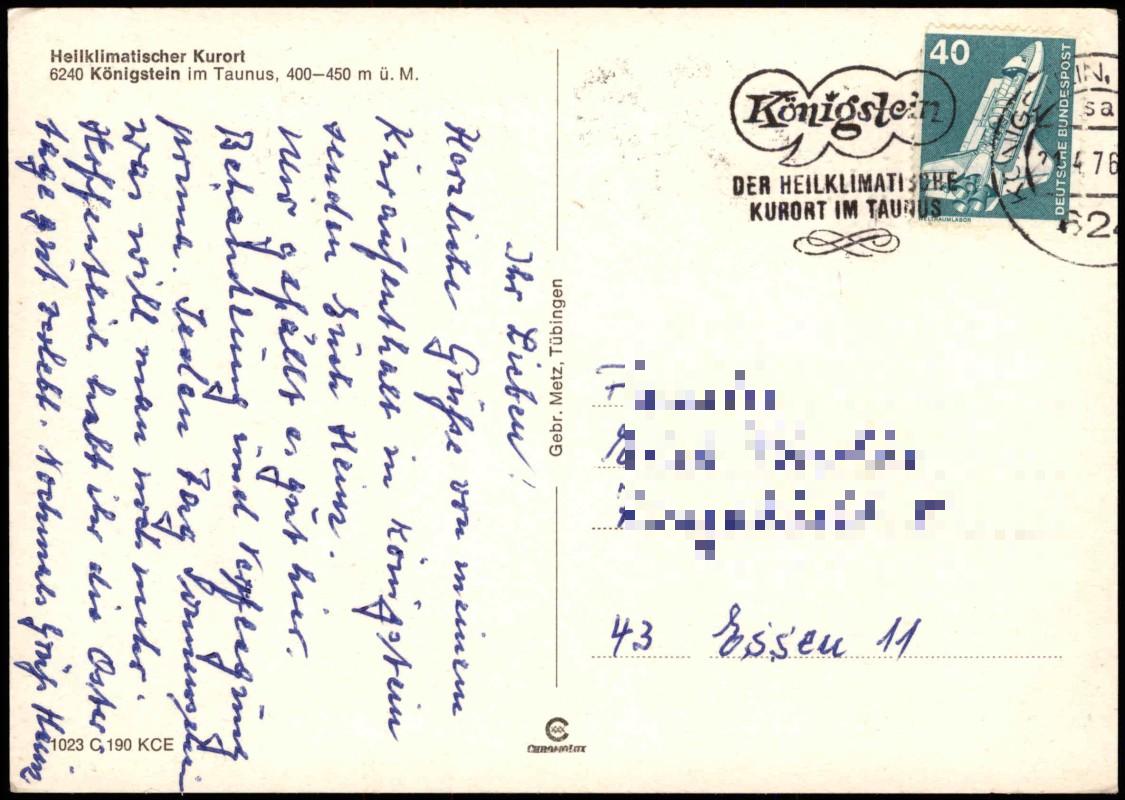 Heilklimatischer Kurort
6240 Königstein im Taunus, 400–450 m ü. M.
Ihr Lieben!
Herzliche Grüße von meinem
Kuraufenthalt in Königstein
senden Euch Heinz.
Mir gefällt es gut hier.
Behandlung und Verpflegung
prima. Jeden Tag
was will man noch mehr.
Hoffentlich habt ihr die Oster-
tage gut verlebt. Nochmals Grüße Heinz
1023 C 190 KCE
Gebr. Metz, Tübingen
CHROMOLUX
Königstein
DER HEILKLIMATISCHE
KURORT IM TAUNUS
40
DEUTSCHE BUNDESPOST
WELTRAUMLABOR
KÖNIGSTEIN
sa
4.76
624
43 Essen 11